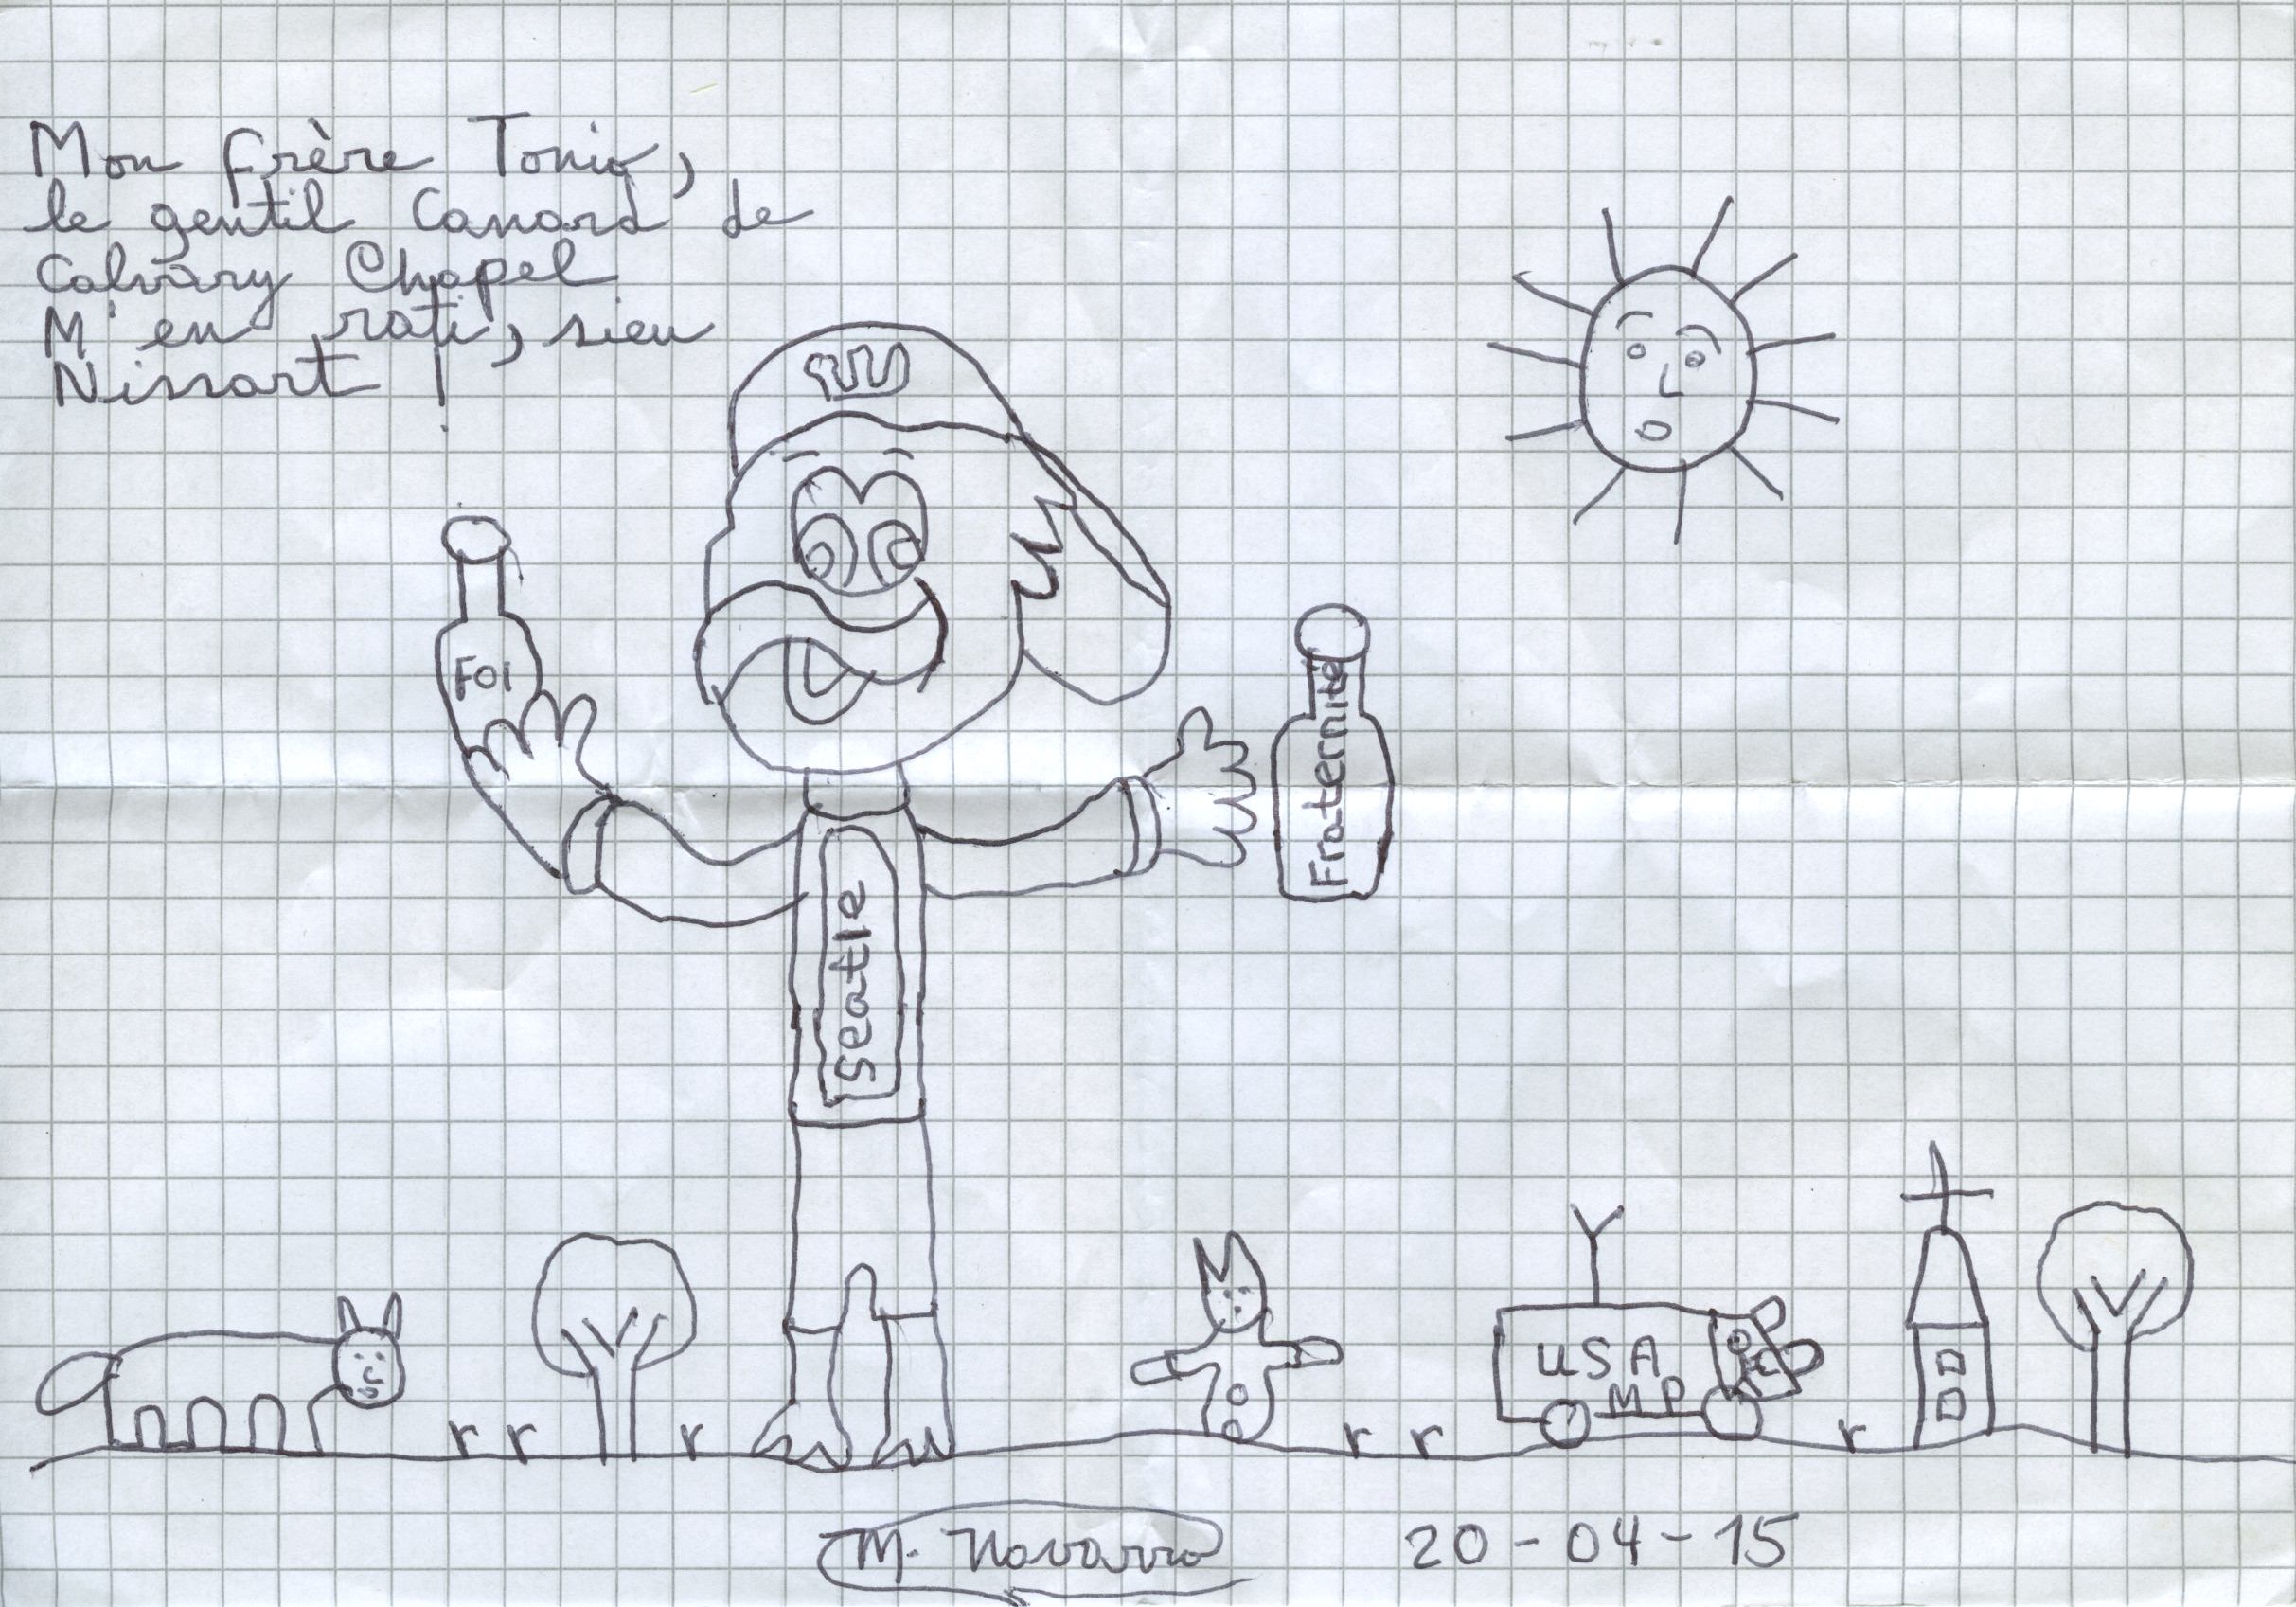 Mon frère Tonio,
le gentil Canard de
Calvary Chapel
M'en rati, sieu
Nissart !
FOI
Fraternité
Seatle
USA
MP
r r r r r r
M. Navarro
20-04-15